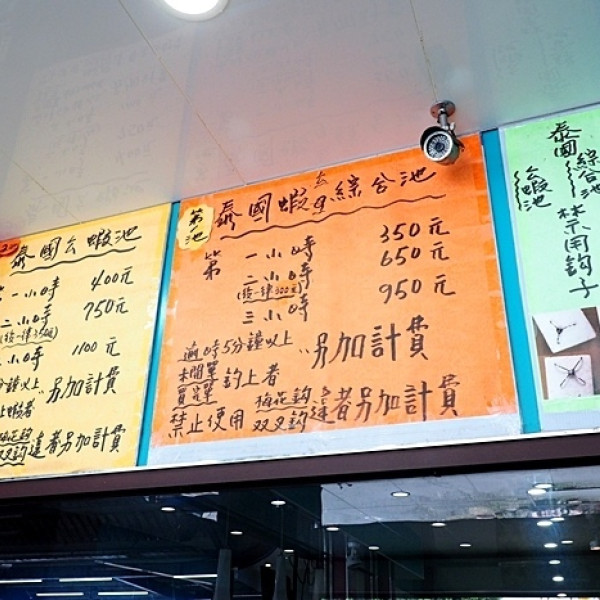 泰國公蝦池
一小時 400元
二小時 750元
(後一律350元)
小時 1100元
分鐘以上
另加計費
上蝦者
梅花鈎
双叉鈎 違者另加計費
第一池
泰國蝦公母綜合池
第一小時 350元
二小時 650元
(後一律300元)
三小時 950元
逾時5分鐘以上
未開單
買單 鈎上者
另加計費
禁止使用 梅花鈎
双叉鈎 違者另加計費
泰國公蝦池
綜合池
禁用鈎子